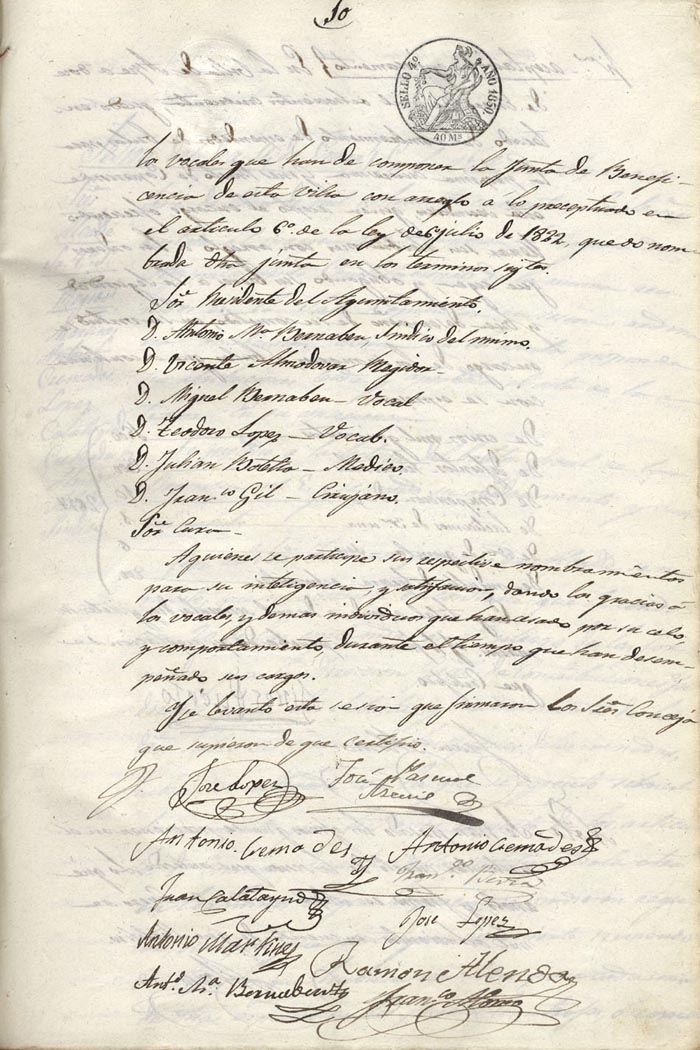 10
SELLO 4º AÑO 1854
40 Ms
los vocales que han de componer la Junta de Benefi-
cencia de esta villa con arreglo a lo preceptuado en
el articulo 6º de la ley de 6 julio de 1822, quedo nom-
brada dha junta en los terminos sigtes
Sor Presidente del Ayuntamiento,
D. Antonio Ma Bernabeu Sindico del mismo.
D. Vicente Almodovar Regidor-
D. Miguel Bernabeu - Vocal
D. Teodoro Lopez - Vocal.
D. Julian Botella - Medico
D. Franco Gil - Cirujano.
Sor Cura-
A quienes se participe sus respective nombramientos
para su inteligencia, y satisfacion, dando las gracias a
los vocales, y demas individuos que han cesado por su celo,
y comportamiento durante el tiempo que han desem-
peñado sus cargos.
Y se levanto esta sesion que firmaron los Sres Concej
que supieron de que certifico.
Jose Lopez José Pascual
Antonio Cremades Antonio Cremades
Franco
Juan Calatayud Jose Lopez
Antonio Martinez
Ramon Alenda
Anto Ma Bernabeu
Franco